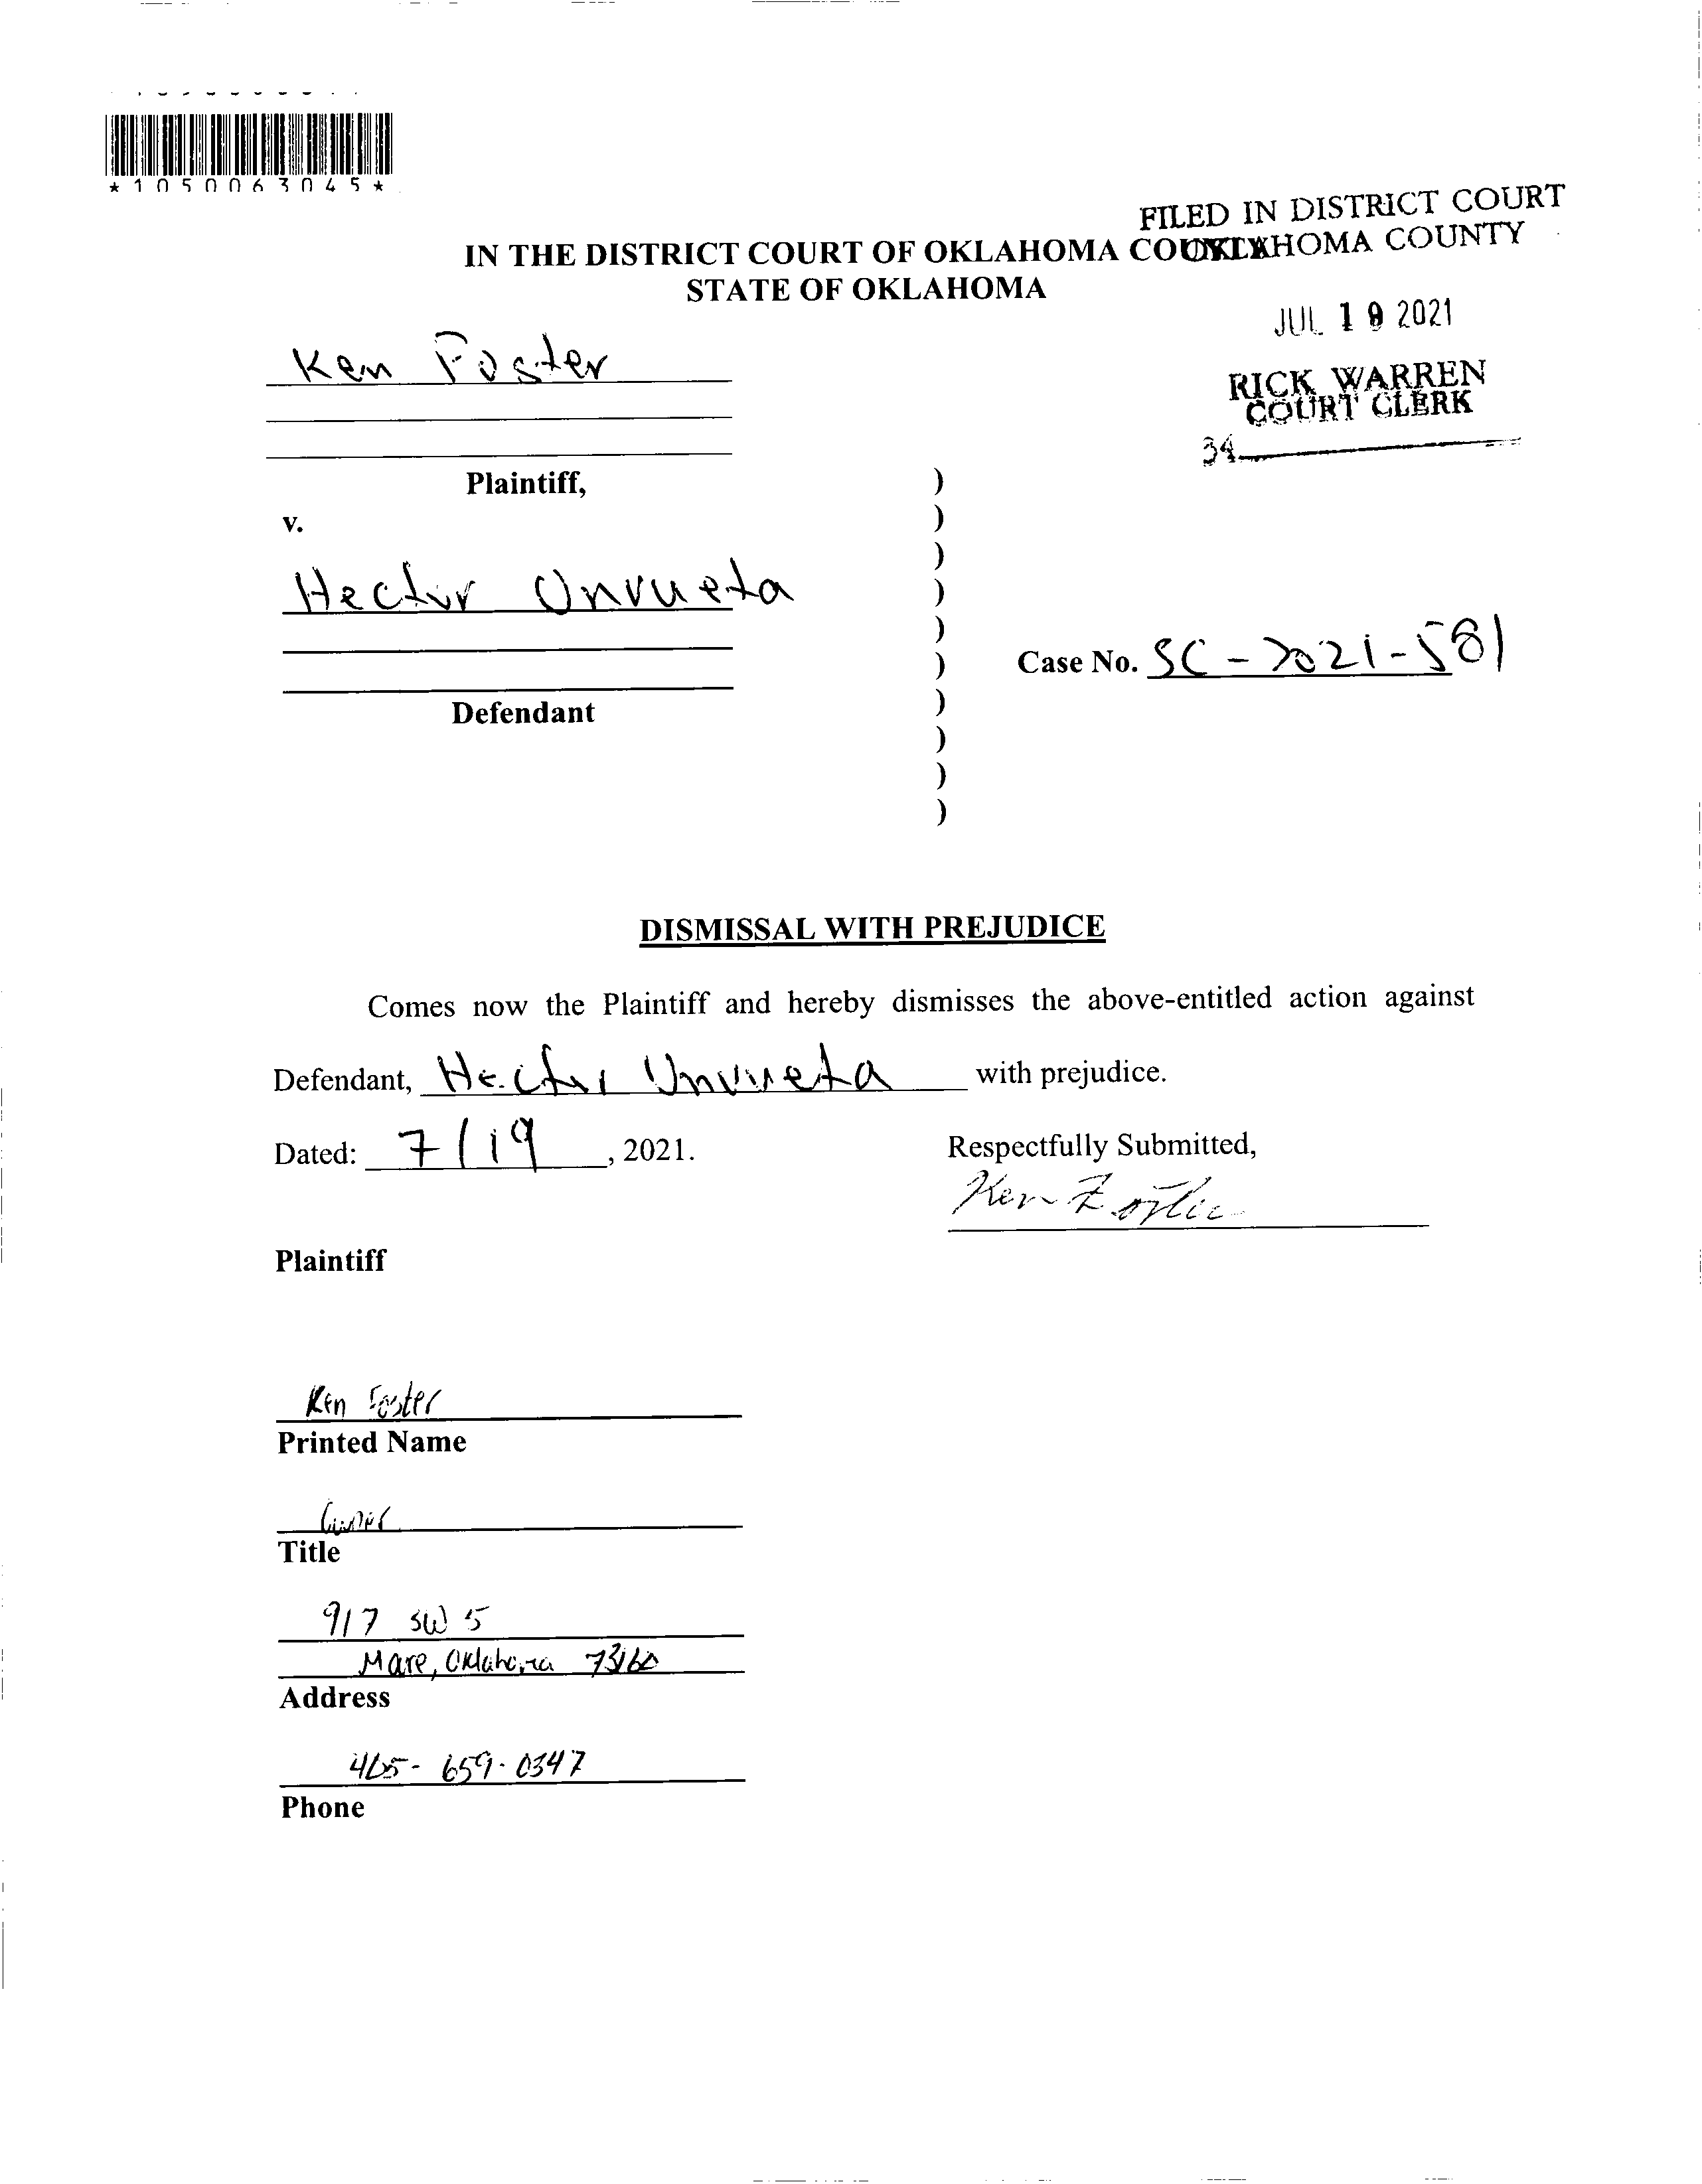 *1050063045*
FILED IN DISTRICT COURT
OKLAHOMA COUNTY
IN THE DISTRICT COURT OF OKLAHOMA COUNTY
STATE OF OKLAHOMA
JUL 19 2021
RICK WARREN
COURT CLERK
34
Ken Foster
Plaintiff,
v.
Hector Unvueta
Defendant
)
)
)
)
)
)
)
)
)
)
Case No. SC-2021-581
DISMISSAL WITH PREJUDICE
Comes now the Plaintiff and hereby dismisses the above-entitled action against
Defendant, Hector Unvueta with prejudice.
Dated: 7/19, 2021.
Respectfully Submitted,
Ken Foster
Plaintiff
Ken Foster
Printed Name
Owner
Title
917 SW 5
Moore, Oklahoma 73160
Address
405-659-0347
Phone